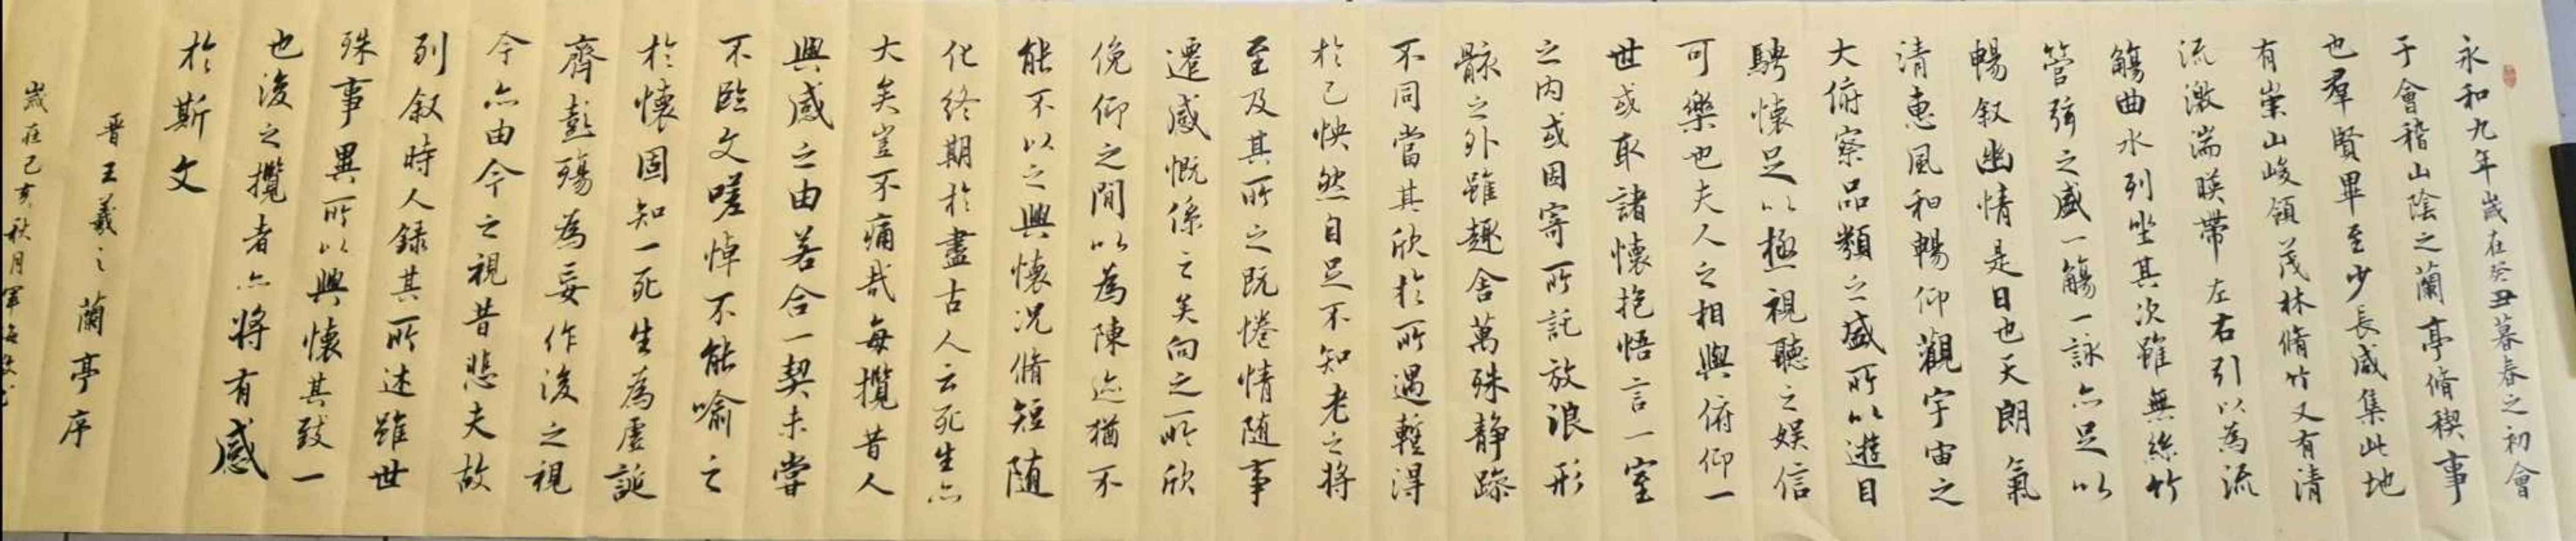 永和九年歲在癸丑暮春之初會
于會稽山陰之蘭亭脩稧事
也羣賢畢至少長咸集此地
有崇山峻領茂林脩竹又有清
流激湍暎帶左右引以為流
觴曲水列坐其次雖無絲竹
管弦之盛一觴一詠亦足以
暢叙幽情是日也天朗氣
清惠風和暢仰觀宇宙之
大俯察品類之盛所以遊目
騁懷足以極視聽之娛信
可樂也夫人之相與俯仰一
世或取諸懷抱悟言一室
之內或因寄所託放浪形
骸之外雖趣舍萬殊静躁
不同當其欣於所遇暫得
於己怏然自足不知老之將
至及其所之既惓情随事
遷感慨係之矣向之所欣
俛仰之間以為陳迹猶不
能不以之興懷況脩短随
化終期於盡古人云死生亦
大矣豈不痛哉每攬昔人
興感之由若合一契未嘗
不臨文嗟悼不能喻之
於懷固知一死生為虛誕
齊彭殤為妄作後之視
今亦由今之視昔悲夫故
列叙時人録其所述雖世
殊事異所以興懷其致一
也後之攬者亦將有感
於斯文
晋王羲之蘭亭序
歲在己亥秋月軍海